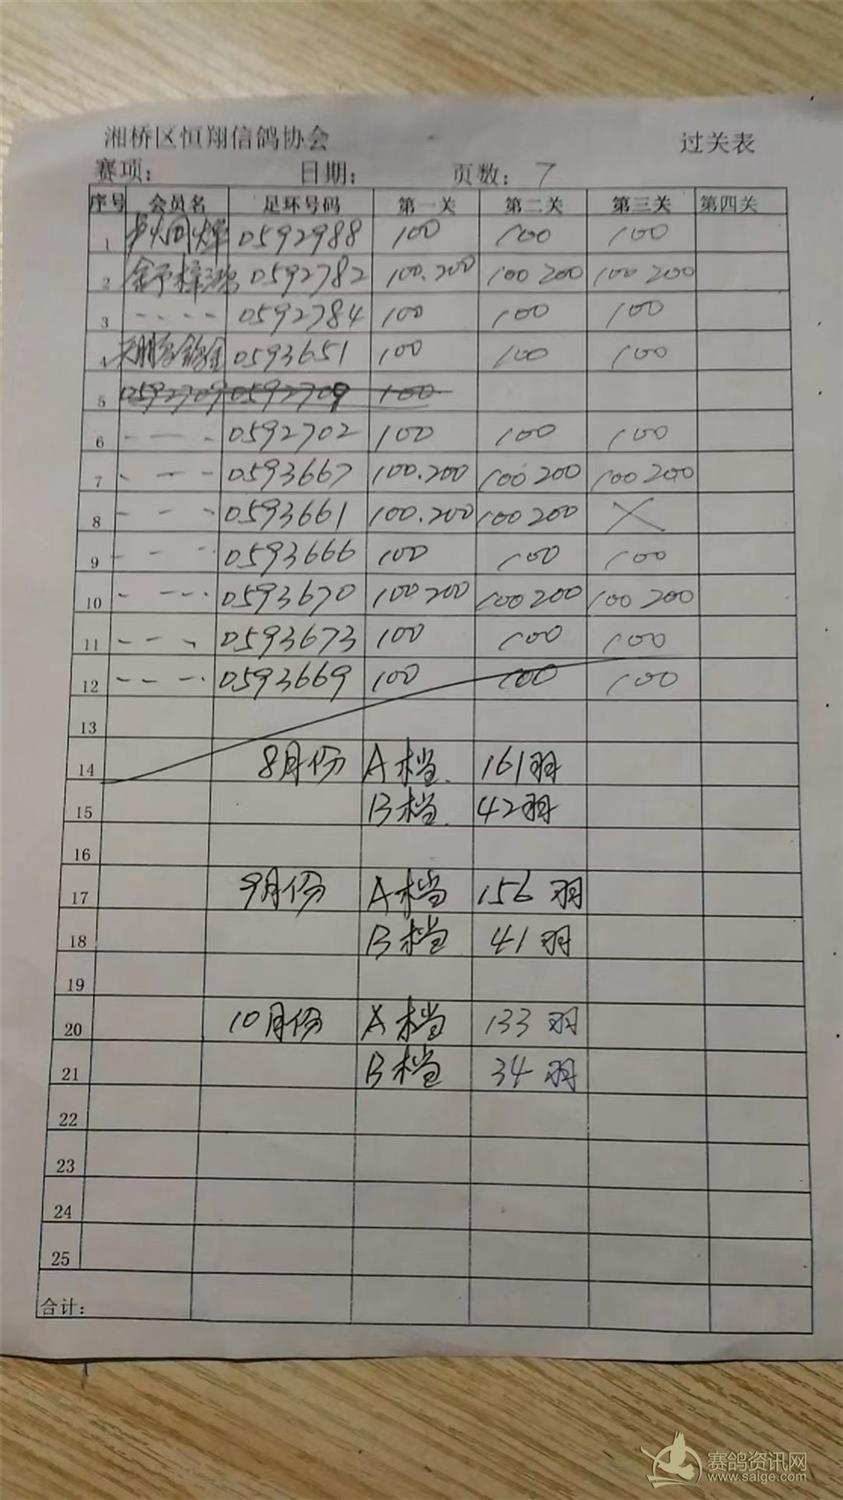 湘桥区恒翔信鸽协会 过关表
赛项: 日期: 页数: 7
序号 会员名 足环号码 第一关 第二关 第三关 第四关
1 0592988 100 100 100
2 0592782 100.200 100 200 100 200
3 0592784 100 100 100
4 0593651 100 100 100
5 0592709 0592709 100
6 0592702 100 100 100
7 0593667 100.200 100 200 100 200
8 0593661 100.200 100 200 X
9 0593666 100 100 100
10 0593670 100 200 100 200 100 200
11 0593673 100 100 100
12 0593669 100 100 100
13
14 8月份 A档 161羽
15 B档 42羽
16
17 9月份 A档 156羽
18 B档 41羽
19
20 10月份 A档 133羽
21 B档 34羽
22
23
24
25
合计:
赛鸽资讯网
www.saige.com